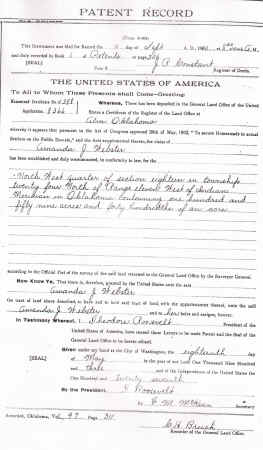 PATENT RECORD
This Instrument was filed for Record on day of Sept A. D. 190 at 8 o'clock A.M.
and duly recorded in Book 1 of Patents on page
[SEAL] Constant
Register of Deeds.
THE UNITED STATES OF AMERICA
To All to Whom These Presents shall Come—Greeting:
Homestead Certificate No. Whereas, There has been deposited in the General Land Office of the United
Application 8366 States a Certificate of the Register of the Land Office at
Alva Oklahoma
whereby it appears that pursuant to the Act of Congress approved 20th of May, 1862, "To secure Homesteads to actual
Settlers on the Public Domain," and the Acts supplemental thereto, the claim of
Amanda J Webster
has been established and duly consummated, in conformity to law, for the
North West quarter of section eighteen in township
twenty four North of Range eleven West of Indian
Meridian in Oklahoma containing one hundred and
fifty nine acres and forty hundredths of an acre
according to the Official Plat of the survey of the said land returned to the General Land Office by the Surveyor General.
Now Know Ye, That there is, therefore, granted by the United States unto the said
Amanda J Webster
the tract of land above described to have and to hold said tract of land, with the appurtenances thereof, unto the said
Amanda J. Webster and to her heirs and assigns, forever.
In Testimony Whereof, I Theodore Roosevelt President of the
United States of America, have caused these Letters to be made Patent and the Seal of the
General Land Office to be hereto affixed.
Given under my hand at the City of Washington, the eighteenth day
[SEAL] of May in the year of our Lord One Thousand Nine Hundred
and three and of the Independence of the United States the
One Hundred and twenty seventh
By the President T Roosevelt
By Secretary
C H Brush
Recorder of the General Land Office.
Recorded, Oklahoma, Vol. 97 Page